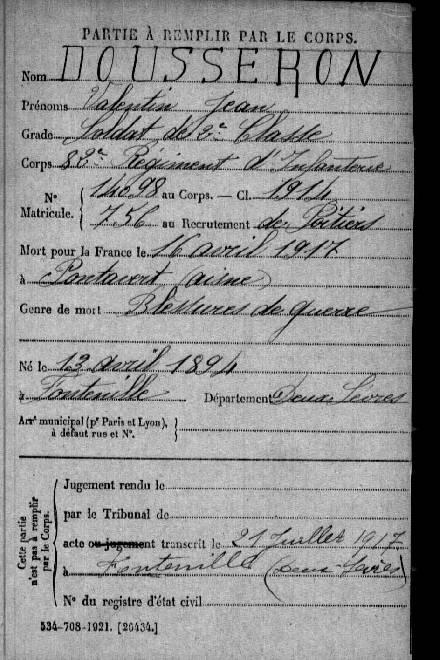 PARTIE À REMPLIR PAR LE CORPS.
Nom DOUSSERON
Prénoms Valentin Jean
Grade Soldat de 2e Classe
Corps 32e Régiment d'Infanterie
N° Matricule. { 14098 au Corps. — Cl. 1914
756 au Recrutement de Poitiers
Mort pour la France le 16 avril 1917
à Pontavert (aisne)
Genre de mort Blessures de guerre
Né le 13 avril 1894
à Fontenille Département Deux Sèvres
Arrt municipal (pr Paris et Lyon), à défaut rue et N°. }
Cette partie n'est pas à remplir par le Corps.
Jugement rendu le
par le Tribunal de
acte ou jugement transcrit le 21 Juillet 1917
à Fontenille (Deux-Sèvres)
N° du registre d'état civil
534-708-1921. [26434.]